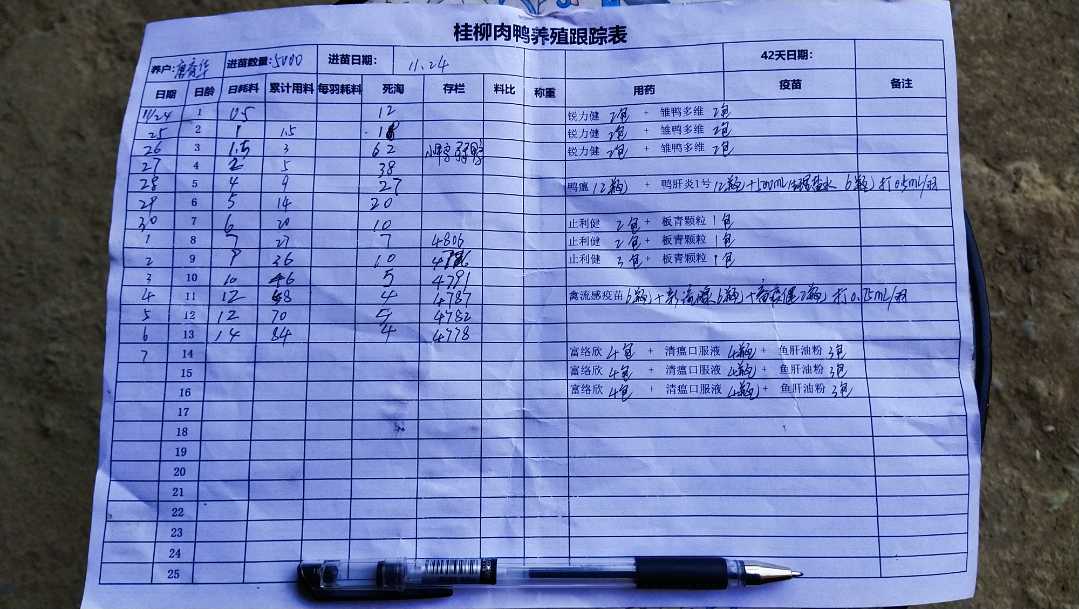 桂柳肉鸭养殖跟踪表
养户: 进苗数量:5000 进苗日期: 11.24 42天日期:
日期 日龄 日耗料 累计用料 每羽耗料 死淘 存栏 料比 称重 用药 疫苗 备注
11/24 1 0.5 12 锐力健 2包 + 雏鸭多维 2包
25 2 1 1.5 18 锐力健 2包 + 雏鸭多维 2包
26 3 1.5 3 62 弱鸭 锐力健 2包 + 雏鸭多维 2包
27 4 2 5 38
28 5 4 9 27 鸭瘟 12瓶 + 鸭肝炎1号 12瓶 +500mL生理盐水 6瓶 打0.5mL/羽
29 6 5 14 20
30 7 6 20 10 止利健 2包 + 板青颗粒 1包
1 8 7 27 7 4806 止利健 2包 + 板青颗粒 1包
2 9 9 36 10 4796 止利健 3包 + 板青颗粒 1包
3 10 10 46 5 4791
4 11 12 58 4 4787 禽流感疫苗 6瓶 + 6瓶 + 2瓶 打0.75mL/羽
5 12 12 70 5 4782
6 13 14 84 4 4778
7 14 富络欣 4包 + 清瘟口服液 4瓶 + 鱼肝油粉 3包
15 富络欣 4包 + 清瘟口服液 4瓶 + 鱼肝油粉 3包
16 富络欣 4包 + 清瘟口服液 4瓶 + 鱼肝油粉 3包
17
18
19
20
21
22
23
24
25